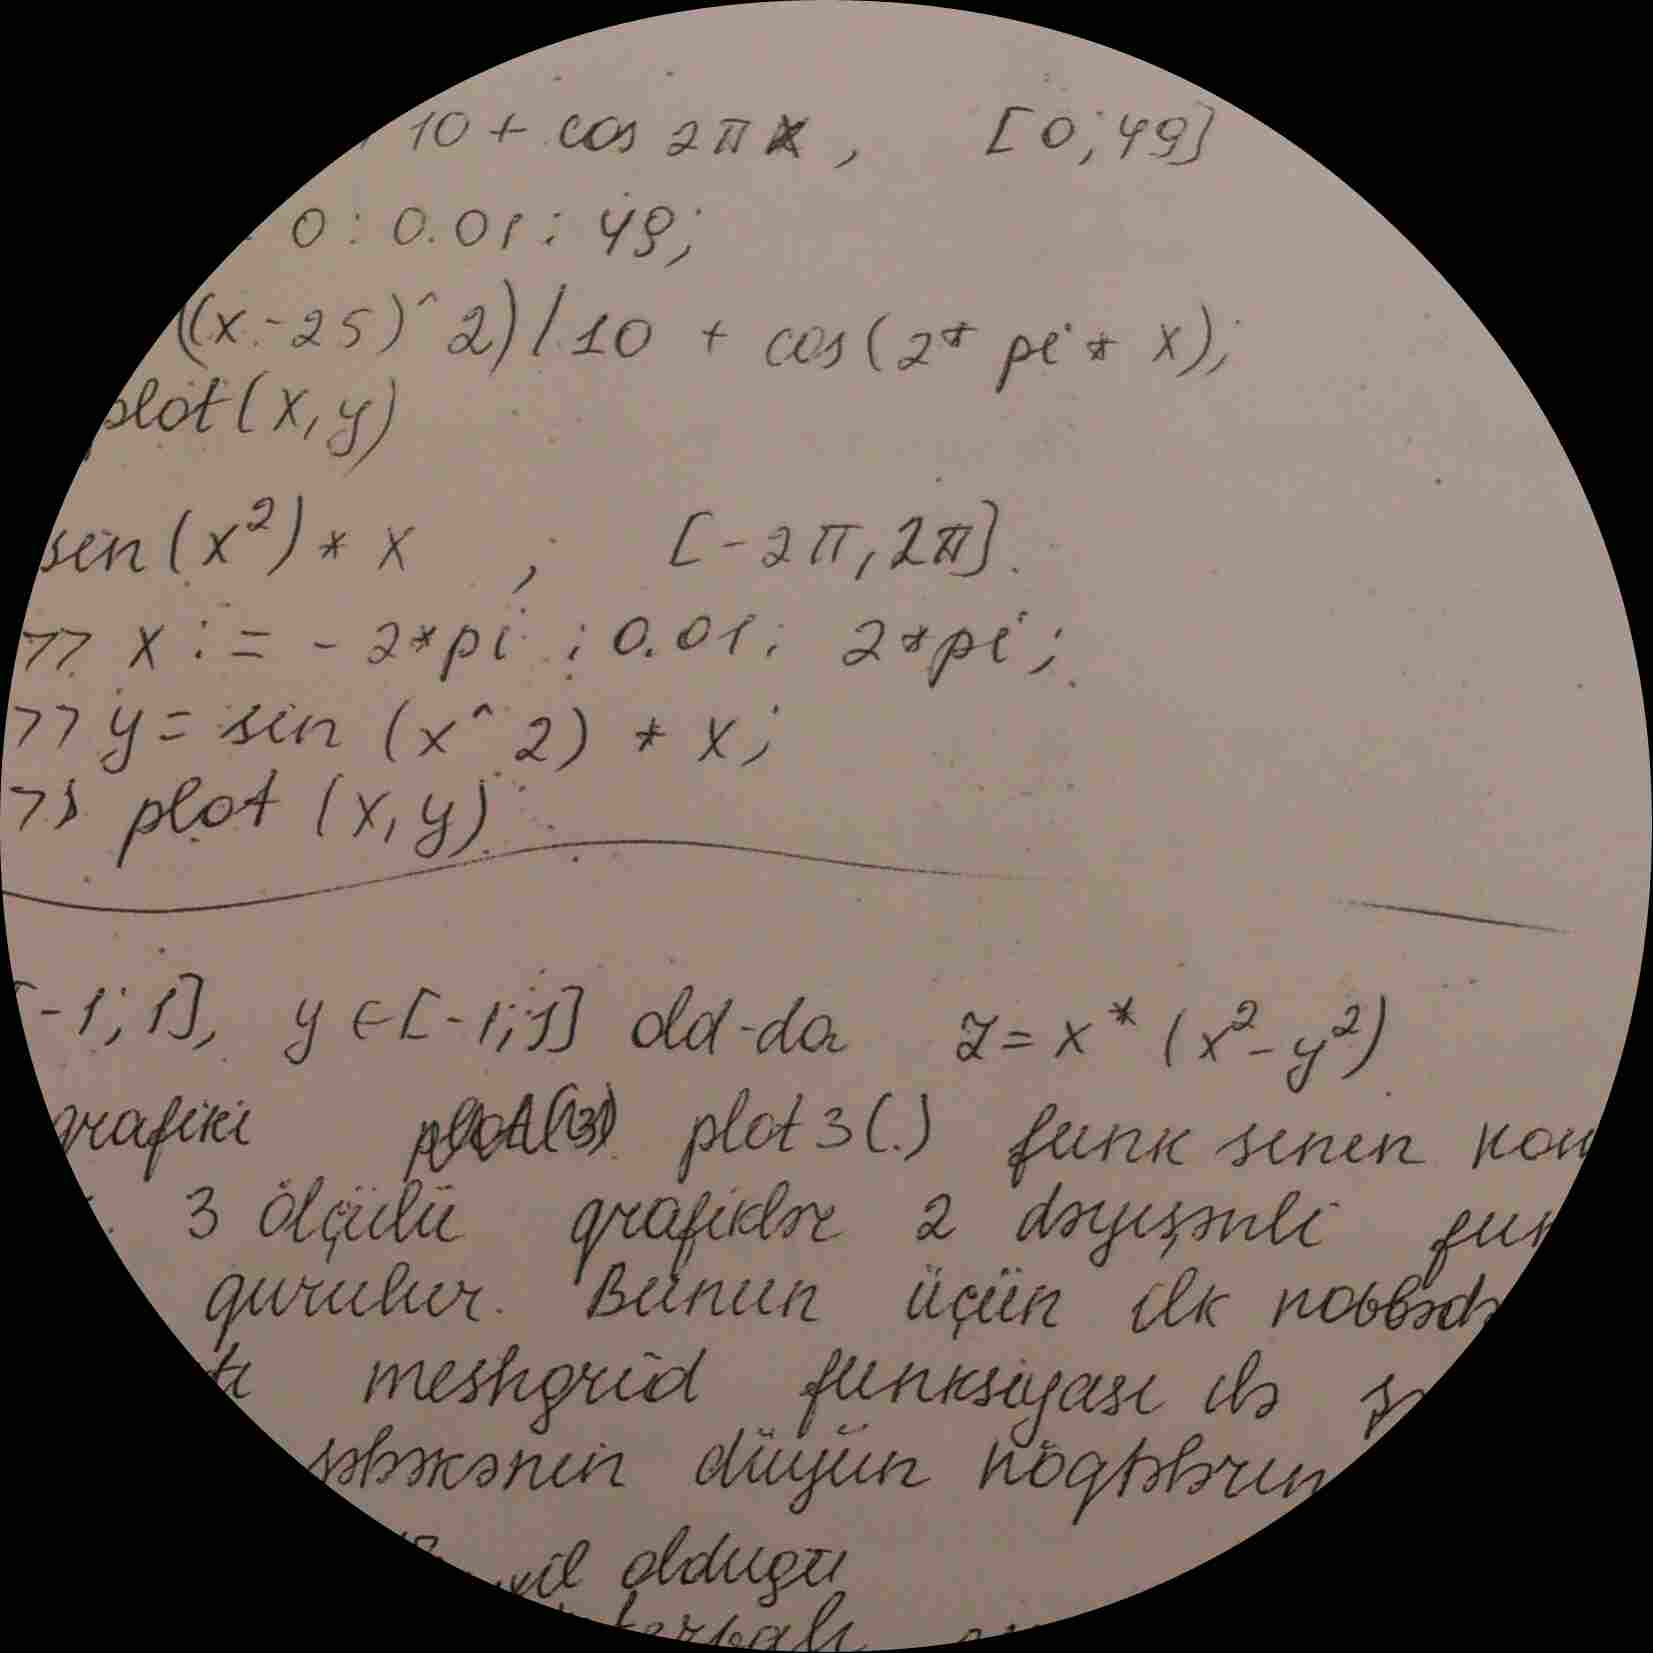 10 + cos 2πx, [0; 49]
0 : 0.01 : 49;
((x-25)^2)/10 + cos(2* pi * x);
plot(x,y)
sin(x²) * x ; [-2π, 2π].
>> x := -2*pi : 0.01 : 2*pi ;
>> y = sin (x^2) * x;
>> plot (x,y)
-1; 1], y ∈ [-1; 1] old-da z = x * (x² - y²)
qrafiki plot3(.) funksenen
3 ölçülü qrafiklər 2 dəyişənli
qurulur. Bunun üçün ilk
meshgrid funksiyası ilə
şəbəkənin düyün
olduğu